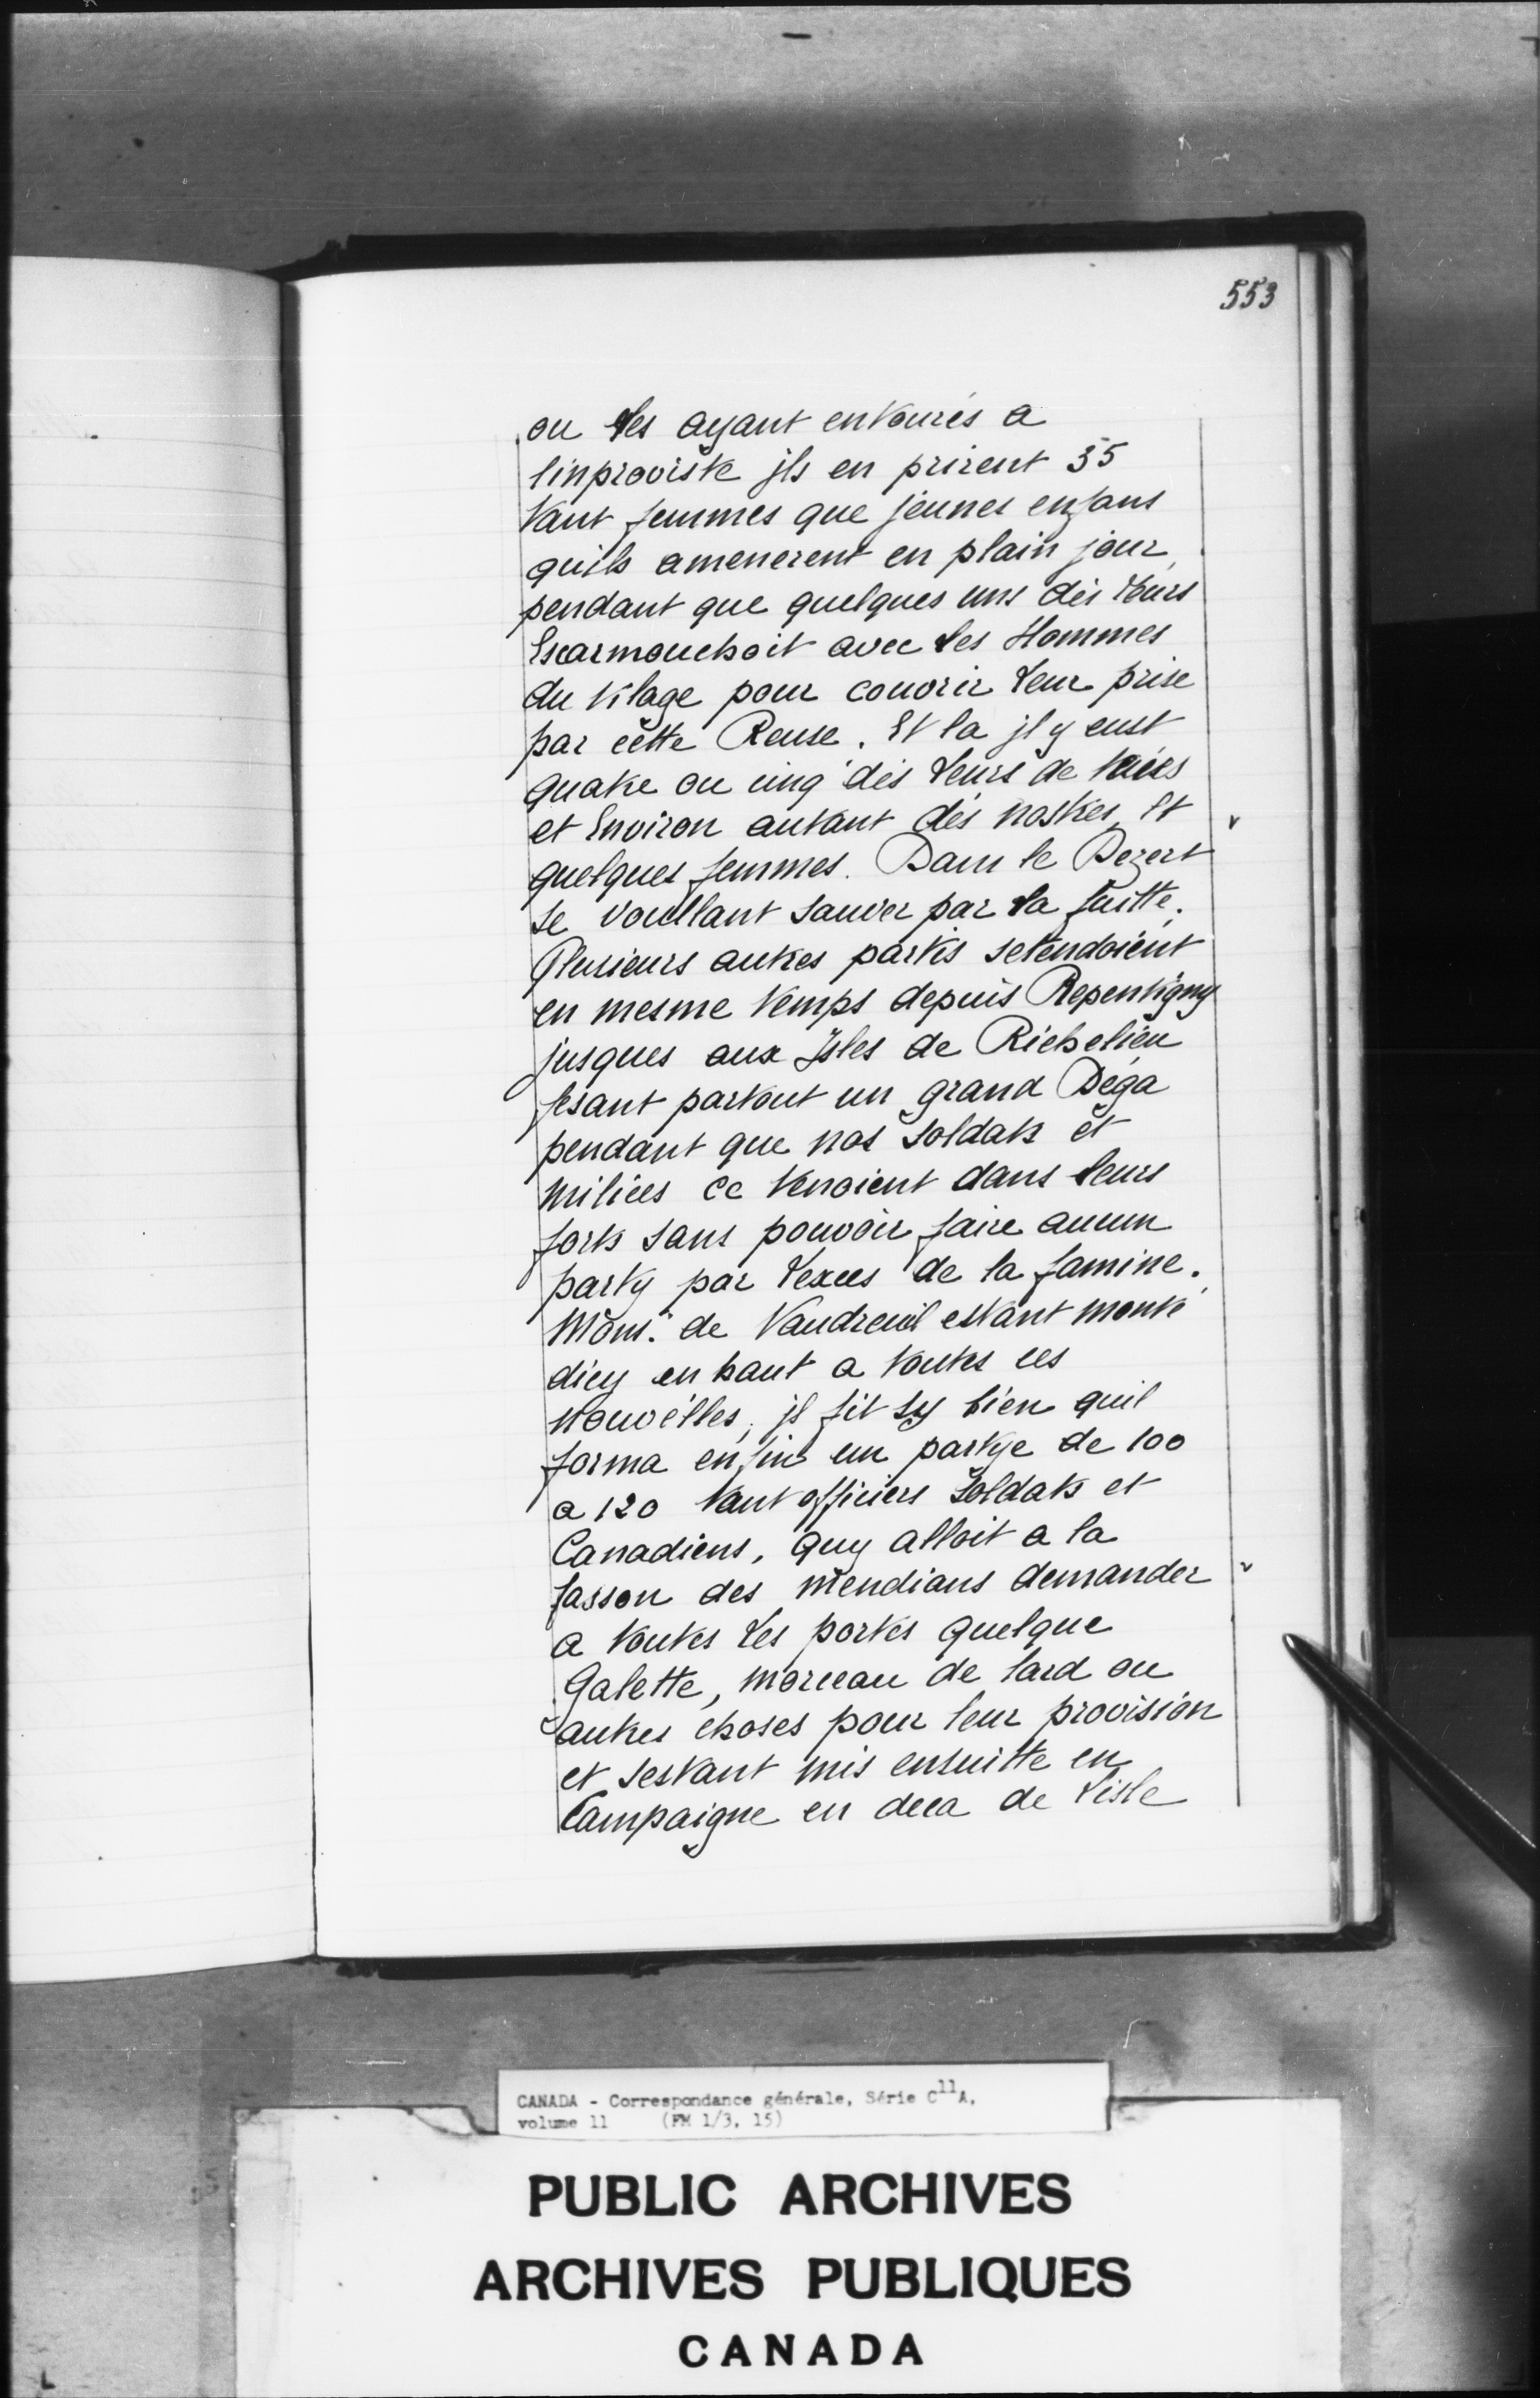 553
ou les ayant entourés a
linproviste jls en prirent 35
tant femmes que jeunes enfans
quils amenerent en plain jour,
pendant que quelques uns dès leurs
Escarmouchoit avec les Hommes
du vilage pour couvrir leur prise
par cette Reuse. Et la jl y eust
quatre ou cinq dès leurs de tuées
et Environ autant dès nostres, Et
quelques femmes. Dans le Dezert
se voullant sauver par la fuitte.
Plusieurs autres partis setendoient
en mesme temps depuis Repentigny
jusques aux Jsles de Richelieu
fesant partout un grand Déga
pendant que nos soldats et
milices ce tenoient dans leurs
forts sans pouvoir faire aucun
party par lexces de la famine.
Mons.r de Vaudreuil estant monté
dicy en haut a toutes ces
nouvélles, jl fit sy bien quil
forma enfin un partye de 100
a 120 tant officiers Soldats et
Canadiens, quy alloit a la
fasson des mendians demander
a toutes les portes quelque
Galette, morceau de lard ou
autres choses pour leur provision
et sestant mis ensuitte en
Campaigne en deca de lisle
CANADA - Correspondance générale, Série C11A,
volume 11 (FM 1/3, 15)
PUBLIC ARCHIVES
ARCHIVES PUBLIQUES
CANADA